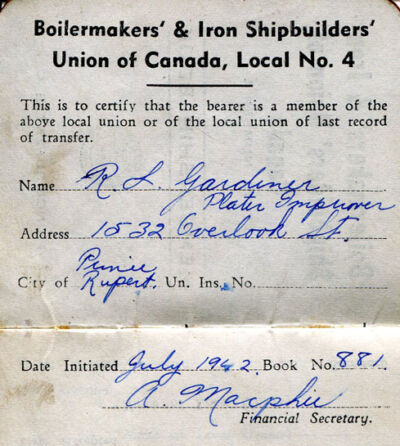 Boilermakers' & Iron Shipbuilders'
Union of Canada, Local No. 4
This is to certify that the bearer is a member of the
above local union or of the local union of last record
of transfer.
Name R. L. Gardiner
Plater Improver
Address 1532 Overlook St.
Prince
City of Rupert. Un. Ins. No.
Date Initiated July 1942. Book No. 881.
A. Macphie
Financial Secretary.